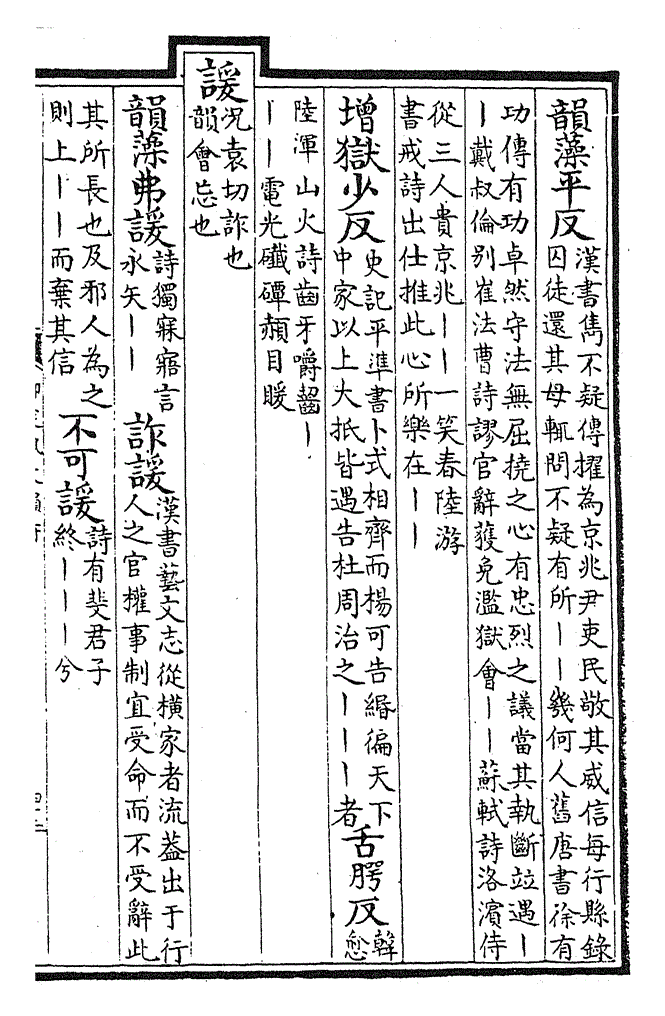 韻藻平反
漢書雋不疑傳擢為京兆尹吏民敬其威信每行縣錄
囚徒還其母輒問不疑有所丨丨幾何人舊唐書徐有
功傳有功卓然守法無屈撓之心有忠烈之議當其執斷竝遇丨
丨戴叔倫別崔法曹詩謬官辭獲免濫獄會丨丨蘇軾詩洛濱侍
從三人貴京兆丨丨一笑春陸游
書戒詩出仕推此心所樂在丨丨
增獄少反
史記平準書卜式相齊而楊可告緡徧天下
中家以上大抵皆遇告杜周治之丨丨丨者
舌腭反
韓
愈
陸渾山火詩齒牙嚼齧丨
丨丨電光𥗫磹赬目暖
諼
況袁切詐也
韻會忘也
韻藻弗諼
詩獨寐寤言
永矢丨丨
詐諼
漢書藝文志從橫家者流葢出于行
人之官權事制宜受命而不受辭此
其所長也及邪人為之
則上丨丨而棄其信
不可諼
詩有斐君子
終丨丨丨兮